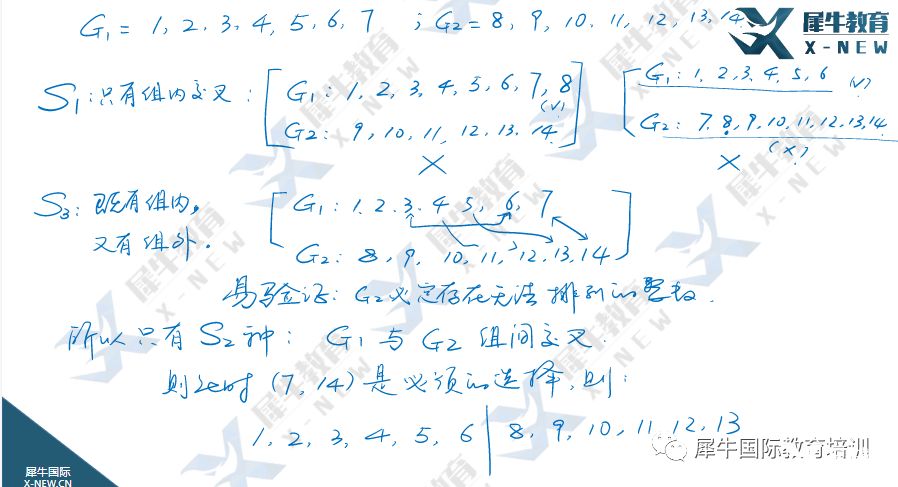 G₁ = 1, 2, 3, 4, 5, 6, 7 ; G₂ = 8, 9, 10, 11, 12, 13, 14
犀牛教育
X-NEW
S₁: 只有组内交叉: G₁: 1, 2, 3, 4, 5, 6, 7, 8 (√) G₁: 1, 2, 3, 4, 5, 6 (√)
G₂: 9, 10, 11, 12, 13, 14 G₂: 7, 8, 9, 10, 11, 12, 13, 14 (×)
× ×
S₃: 既有组内, G₁: 1, 2, 3, 4, 5, 6, 7
又有组外. G₂: 8, 9, 10, 11, 12, 13, 14
易验证: G₂必定存在无法排列的整数.
所以只有S₂种: G₁与G₂组间交叉.
则此时 (7, 14) 是必须的选择, 则:
1, 2, 3, 4, 5, 6 | 8, 9, 10, 11, 12, 13
犀牛国际教育培训
犀牛国际
X-NEW.CN